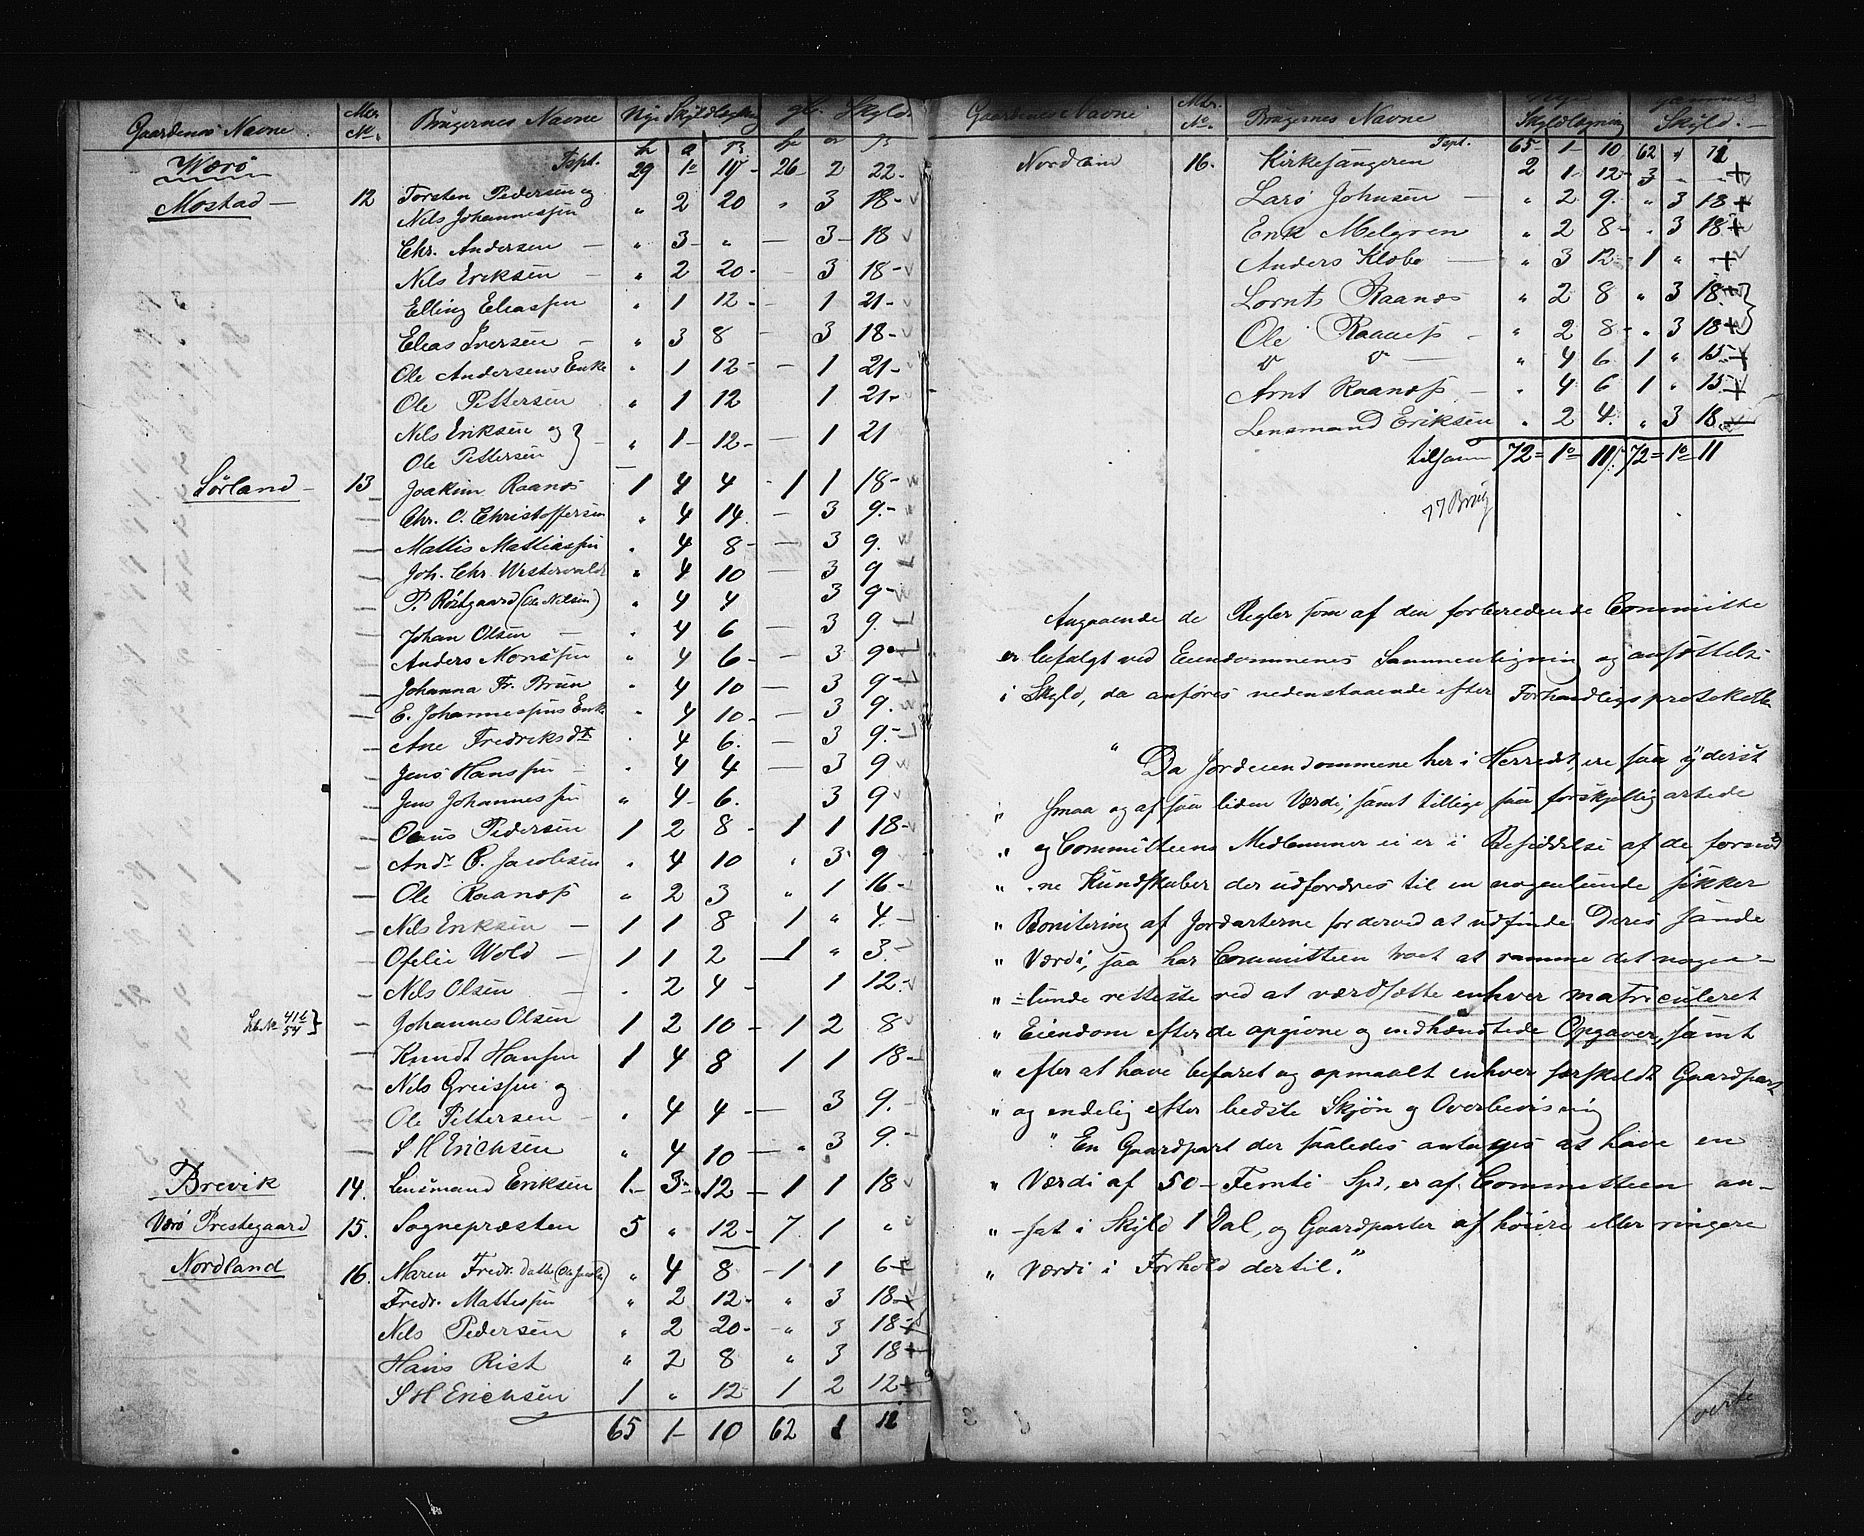 Gaardenes Navne Mtr. No. Brugernes Navne Nye Skyldlægning gl. Skyld
Værø Tspt. 29 1 19 26 2 22
Mostad 12 Torsten Pedersen og
Nils Johannessen " 2 20 " 3 18
Chr. Andersen " 3 " — 3 18
Nils Eriksen " 2 20 — 3 18
Elling Eliassen " 1 12 — 1 21
Elias Iversen " 3 8 — 3 18
Ole Andersens Enke " 1 12 — 1 21
Ole Pettersen " 1 12 1 21
Nils Eriksen og }
Ole Pettersen } " 1 12 — 1 21
Sørland 13 Joakim Raanes 1 4 4 1 1 18
— Chr. C. Christoffersen " 4 14 — 3 9
— Mattis Mattiassen " 4 8 — 3 9
— Joh. Chr. Westervald " 4 10 — 3 9
— P. Röstgaard (Ole Nilsen) " 4 4 3 9
— Johan Olsen " 4 6 — 3 9
— Anders Monssen " 4 6 — 3 9
— Johanna Fr. Brun " 4 10 — 3 9
— E. Johannessens Enke " 4 10 — 3 9
— Ane Fredriksdt. " 4 6 — 3 9
— Jens Hanssen " 4 4 — 3 9
— Jens Johannessen " 4 6 3 9
— Claus Pedersen 1 2 8 1 1 18
— And. C. Jacobsen " 4 10 " 3 9
— Ole Raanæs " 2 3 " 1 16
— Nils Eriksen 1 1 8 1 " 4
— Ofelie Wold 1 1 2 1 " 3
— Nils Olsen " 2 4 — 1 12
Lb. No 41 b/54 } — Johannes Olsen 1 2 10 1 2 8
— Knudt Hansen 1 4 8 1 1 18
— Nils Greissen og
— Ole Pettersen " 4 4 — 3 9
— S H Erichsen " 4 10 — " 3 9
Brevik 14. Lensmand Eriksen 1 3 12 1 1 18
Værø Prestegaard 15. Sognepræsten 5 " 12 7 1 "
Nordland 16. Maren Fredr. Datter (Ole Jacobs) " 4 8 1 1 6
Fredr. Mattissen " 2 12 " 3 18
Nils Pedersen " 2 20 " 3 18
Hans Rist " 2 8 " 3 18
S H Erichsen 1 " 12 1 2 12
65 1 10 62 1 11
Gaardenes Navne Mtr. No. Brugernes Navne Skyldlægning Skyld
Tspt. 65 1 10 62
Nordland 16. Kirkesangeren 2 1 12 3 " "
Lars Johnsen " 2 9 " 3 18
Erik Melgren " 2 8 " 3 18
Anders Klobo " 3 12 1 " "
Lornts Raanes " 2 8 " 3 18 }
Ole Raanes " 2 8 " 3 18 }
" " " 4 6 1 " 15
Arnt Raanæs " 4 6 1 " 15
Lensmand Eriksen " 2 4 " 3 18
tilsam 72 1 11 72 1 11
77 Brug
Angaaende de Regler som af den forberedende Committe
er befulgt ved Eiendommenes Sammenligning og ansættelse
i Skyld, da anføres nedenstaaende efter Forhandligsprotokollen
" Da Jordeiendommene her i Herredt, ere saa yderst
" smaa og af saa liden Værdi, samt tillige saa forskjelligartede
" og Committeens Medlemmer ei er i Besiddelse af de fornød
" ne Kundskaber der udfordres til en nogenlunde sikker
" Bonitering af Jordarterne for derved at udfinde Deres sande
" Værdi, saa har Committeen troet at ramme det nogen-
" -lunde retteste ved at værdsætte enhver matriculeret
" Eiendom efter de opgivne og indhændtede Opgaver, samt
" efter at have befaret og opmaalt enhver særskeldt Gaardpart
" og endelig efter bedste Skjøn og Overbevisning
" En Gaardpart der saaledes antages at have en
" Værdi af 50 – Femti Spd, er af Committeen an-
" -sat i Skyld 1 Dal, og Gaardparter af høiere eller ringere
" Værdi i Forhold dertil."
/verte